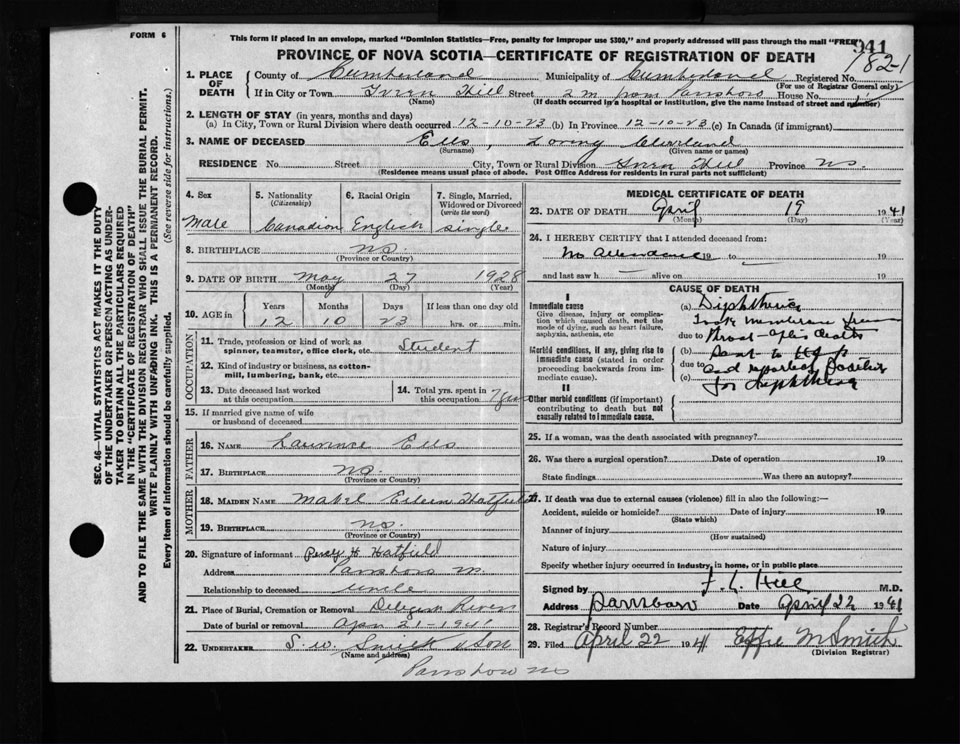 FORM 6
This form if placed in an envelope, marked "Dominion Statistics—Free, penalty for improper use $300," and properly addressed will pass through the mail "FREE"
941
PROVINCE OF NOVA SCOTIA—CERTIFICATE OF REGISTRATION OF DEATH
1821
1. PLACE OF DEATH
County of Cumberland Municipality of Cumberland Registered No.
(For use of Registrar General only)
If in City or Town Hill Street 2 m from Parrsboro House No.
(Name) (If death occurred in a hospital or institution, give the name instead of street and number)
2. LENGTH OF STAY (in years, months and days)
(a) In City, Town or Rural Division where death occurred 12-10-23 (b) In Province 12-10-23 (c) In Canada (if immigrant)
3. NAME OF DECEASED Ells, Cleveland
(Surname) (Given name or names)
RESIDENCE No. Street City, Town or Rural Division Hill Province NS.
(Residence means usual place of abode. Post Office Address for residents in rural parts not sufficient)
4. Sex
Male
5. Nationality (Citizenship)
Canadian
6. Racial Origin
English
7. Single, Married, Widowed or Divorced (write the word)
Single
8. BIRTHPLACE NS.
(Province or Country)
9. DATE OF BIRTH May 27 1928
(Month) (Day) (Year)
10. AGE in
Years Months Days If less than one day old
12 10 23 hrs. or min.
OCCUPATION
11. Trade, profession or kind of work as spinner, teamster, office clerk, etc. Student
12. Kind of industry or business, as cotton-mill, lumbering, bank, etc.
13. Date deceased last worked at this occupation
14. Total yrs. spent in this occupation 7 yrs
15. If married give name of wife or husband of deceased
FATHER
16. NAME Lawrence Ells
17. BIRTHPLACE NS.
(Province or Country)
MOTHER
18. MAIDEN NAME Mabel Eileen Hatfield
19. BIRTHPLACE NS.
(Province or Country)
20. Signature of informant Percy H Hatfield
Address Parrsboro
Relationship to deceased uncle
21. Place of Burial, Cremation or Removal River
Date of burial or removal Apr 21-1941
22. UNDERTAKER S. W. Smith & Son
(Name and address)
Parrsboro NS
MEDICAL CERTIFICATE OF DEATH
23. DATE OF DEATH April 19 1941
(Month) (Day) (Year)
24. I HEREBY CERTIFY that I attended deceased from:
No Attendance 19 to
and last saw h alive on 19
CAUSE OF DEATH
I
Immediate cause
Give disease, injury or complication which caused death, not the mode of dying, such as heart failure, asphyxia, asthenia, etc
Morbid conditions, if any, giving rise to immediate cause (stated in order proceeding backwards from immediate cause).
II
Other morbid conditions (if important) contributing to death but not causally related to immediate cause.
(a) Diphtheria
Took membrane from
due to throat after death
(b) Sent to
due to and reported Positive
(c) for diphtheria
25. If a woman, was the death associated with pregnancy?
26. Was there a surgical operation? Date of operation 19
State findings Was there an autopsy?
27. If death was due to external causes (violence) fill in also the following:—
Accident, suicide or homicide? Date of injury 19
(State which)
Manner of injury
(How sustained)
Nature of injury
Specify whether injury occurred in industry, in home, or in public place
Signed by F. L. Hill M.D.
Address Parrsboro Date April 22 1941
28. Registrar's Record Number
29. Filed April 22 1941 Effie M Smith
(Division Registrar)
SEC. 46—VITAL STATISTICS ACT MAKES IT THE DUTY
OF THE UNDERTAKER OR PERSON ACTING AS UNDER-
TAKER TO OBTAIN ALL THE PARTICULARS REQUIRED
IN THE "CERTIFICATE OF REGISTRATION OF DEATH"
AND TO FILE THE SAME WITH THE DIVISION REGISTRAR WHO SHALL ISSUE THE BURIAL PERMIT.
WRITE PLAINLY WITH UNFADING INK. THIS IS A PERMANENT RECORD.
Every item of information should be carefully supplied. (See reverse side for instructions.)